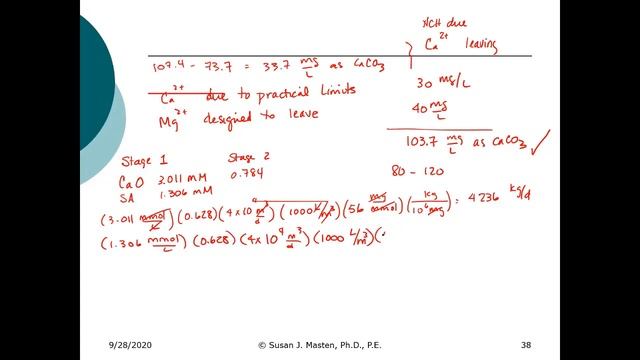 NCH due
Ca²⁺ leaving
107.4 - 73.7 = 33.7 mg/L as CaCO₃
30 mg/L
Ca²⁺ due to practical limits
40 mg/L
Mg²⁺ designed to leave
103.7 mg/L as CaCO₃ ✓
Stage 1 Stage 2
80 - 120
CaO 3.011 mM 0.784
SA 1.306 mM
(3.011 mmol/L)(0.628)(4×10⁴ m³/d)(1000 L/m³)(56 mg/mmol)(1 kg/10⁶ mg) = 4236 kg/d
(1.306 mmol/L)(0.628)(4×10⁴ m³/d)(1000 L/m³)(
9/28/2020 © Susan J. Masten, Ph.D., P.E. 38